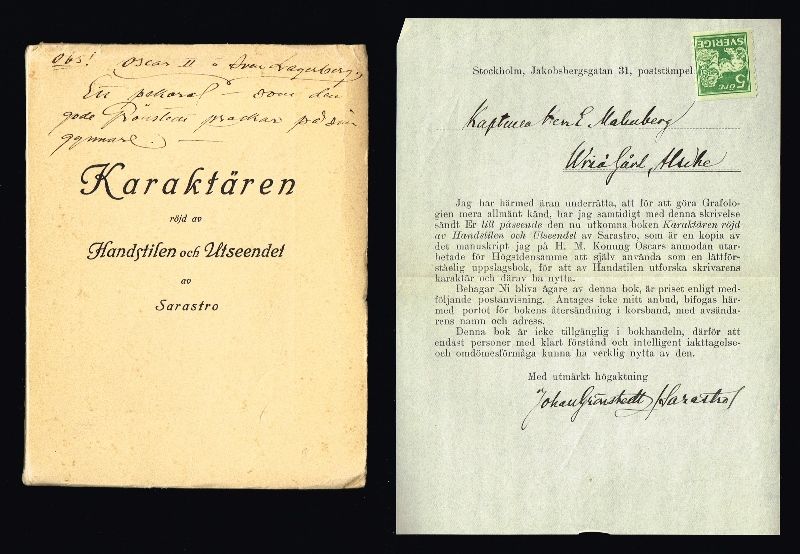 Obs!
Oscar II o Sven Lagerberg,
Ett pekoral – som den
gode Grönstedt prackar på sin
gynnare. —
Karaktären
röjd av
Handstilen och Utseendet
av
Sarastro
5 ÖRE
SVERIGE
Stockholm, Jakobsbergsgatan 31, poststämpel.
Kaptenen E. Malmberg
Gård, Alsike
Jag har härmed äran underrätta, att för att göra Grafolo-
gien mera allmänt känd, har jag samtidigt med denna skrivelse
sändt Er till påseende den nu utkomna boken Karaktären röjd
av Handstilen och Utseendet av Sarastro, som är en kopia av
det manuskript jag på H. M. Konung Oscars anmodan utar-
betade för Högstdensamme att själv använda som en lättför-
ståelig uppslagsbok, för att av Handstilen utforska skrivarens
karaktär och därav ha nytta.
Behagar Ni bliva ägare av denna bok, är priset enligt med-
följande postanvisning. Antages icke mitt anbud, bifogas här-
med portot för bokens återsändning i korsband, med avsända-
rens namn och adress.
Denna bok är icke tillgänglig i bokhandeln, därför att
endast personer med klart förstånd och intelligent iakttagelse-
och omdömesförmåga kunna ha verklig nytta av den.
Med utmärkt högaktning
Johan Grönstedt /Sarastro/